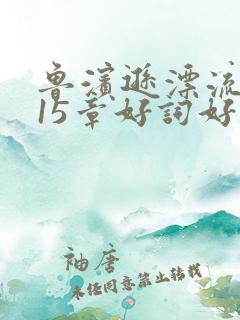 鲁滨逊漂流
15章好词好
袖唐
未经同意禁止转载